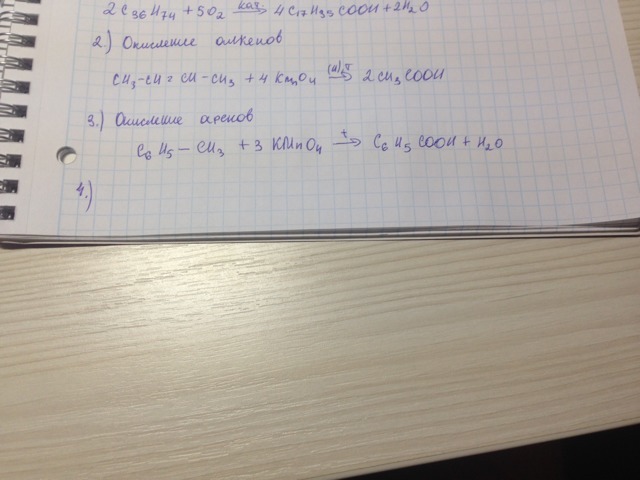 2C₃₆H₇₄ + 5O₂ кат.→ 4C₁₇H₃₅COOH + 2H₂O
2.) Окисление алкенов
CH₃-CH=CH-CH₃ + 4 KMnO₄ (H),T→ 2CH₃COOH
3.) Окисление аренов
C₆H₅ – CH₃ + 3 KMnO₄ t→ C₆H₅COOH + H₂O
4.)